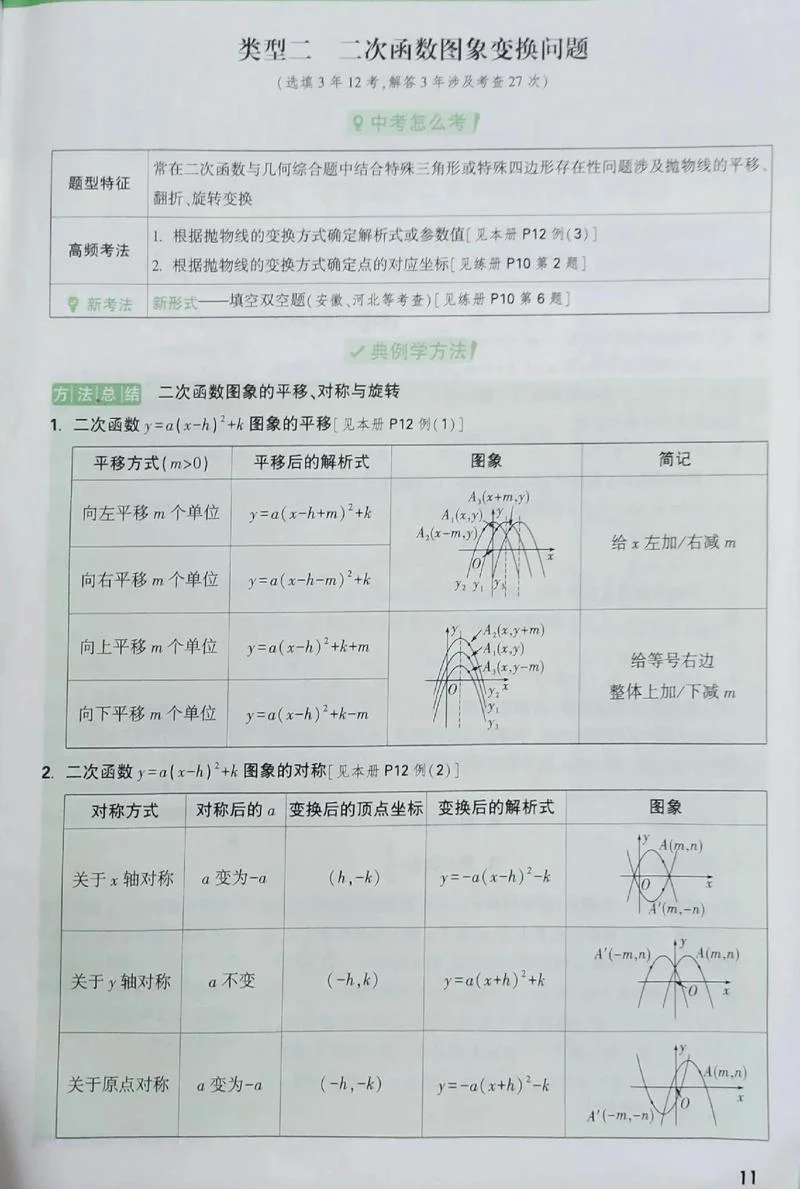 类型二 二次函数图象变换问题
(选填3年12考,解答3年涉及考查27次)
中考怎么考
题型特征
常在二次函数与几何综合题中结合特殊三角形或特殊四边形存在性问题涉及抛物线的平移、
翻折、旋转变换
高频考法
1. 根据抛物线的变换方式确定解析式或参数值[见本册P12例(3)]
2. 根据抛物线的变换方式确定点的对应坐标[见练册P10第2题]
新考法
新形式——填空双空题(安徽、河北等考查)[见练册P10第6题]
典例学方法
方法总结 二次函数图象的平移、对称与旋转
1. 二次函数y=a(x-h)²+k图象的平移[见本册P12例(1)]
平移方式(m>0) 平移后的解析式 图象 简记
向左平移m个单位 y=a(x-h+m)²+k
A₃(x+m,y)
A₁(x,y) y
A₂(x-m,y)
O x
y₂ y₁ y₃
给x左加/右减m
向右平移m个单位 y=a(x-h-m)²+k
向上平移m个单位 y=a(x-h)²+k+m
y A₂(x,y+m)
A₁(x,y)
A₃(x,y-m)
O x
y₂
y₁
y₃
给等号右边
整体上加/下减m
向下平移m个单位 y=a(x-h)²+k-m
2. 二次函数y=a(x-h)²+k图象的对称[见本册P12例(2)]
对称方式 对称后的a 变换后的顶点坐标 变换后的解析式 图象
关于x轴对称 a变为-a (h,-k) y=-a(x-h)²-k
y A(m,n)
O x
A'(m,-n)
关于y轴对称 a不变 (-h,k) y=a(x+h)²+k
A'(-m,n) y A(m,n)
O x
关于原点对称 a变为-a (-h,-k) y=-a(x+h)²-k
y
A(m,n)
x
O
A'(-m,-n)
11